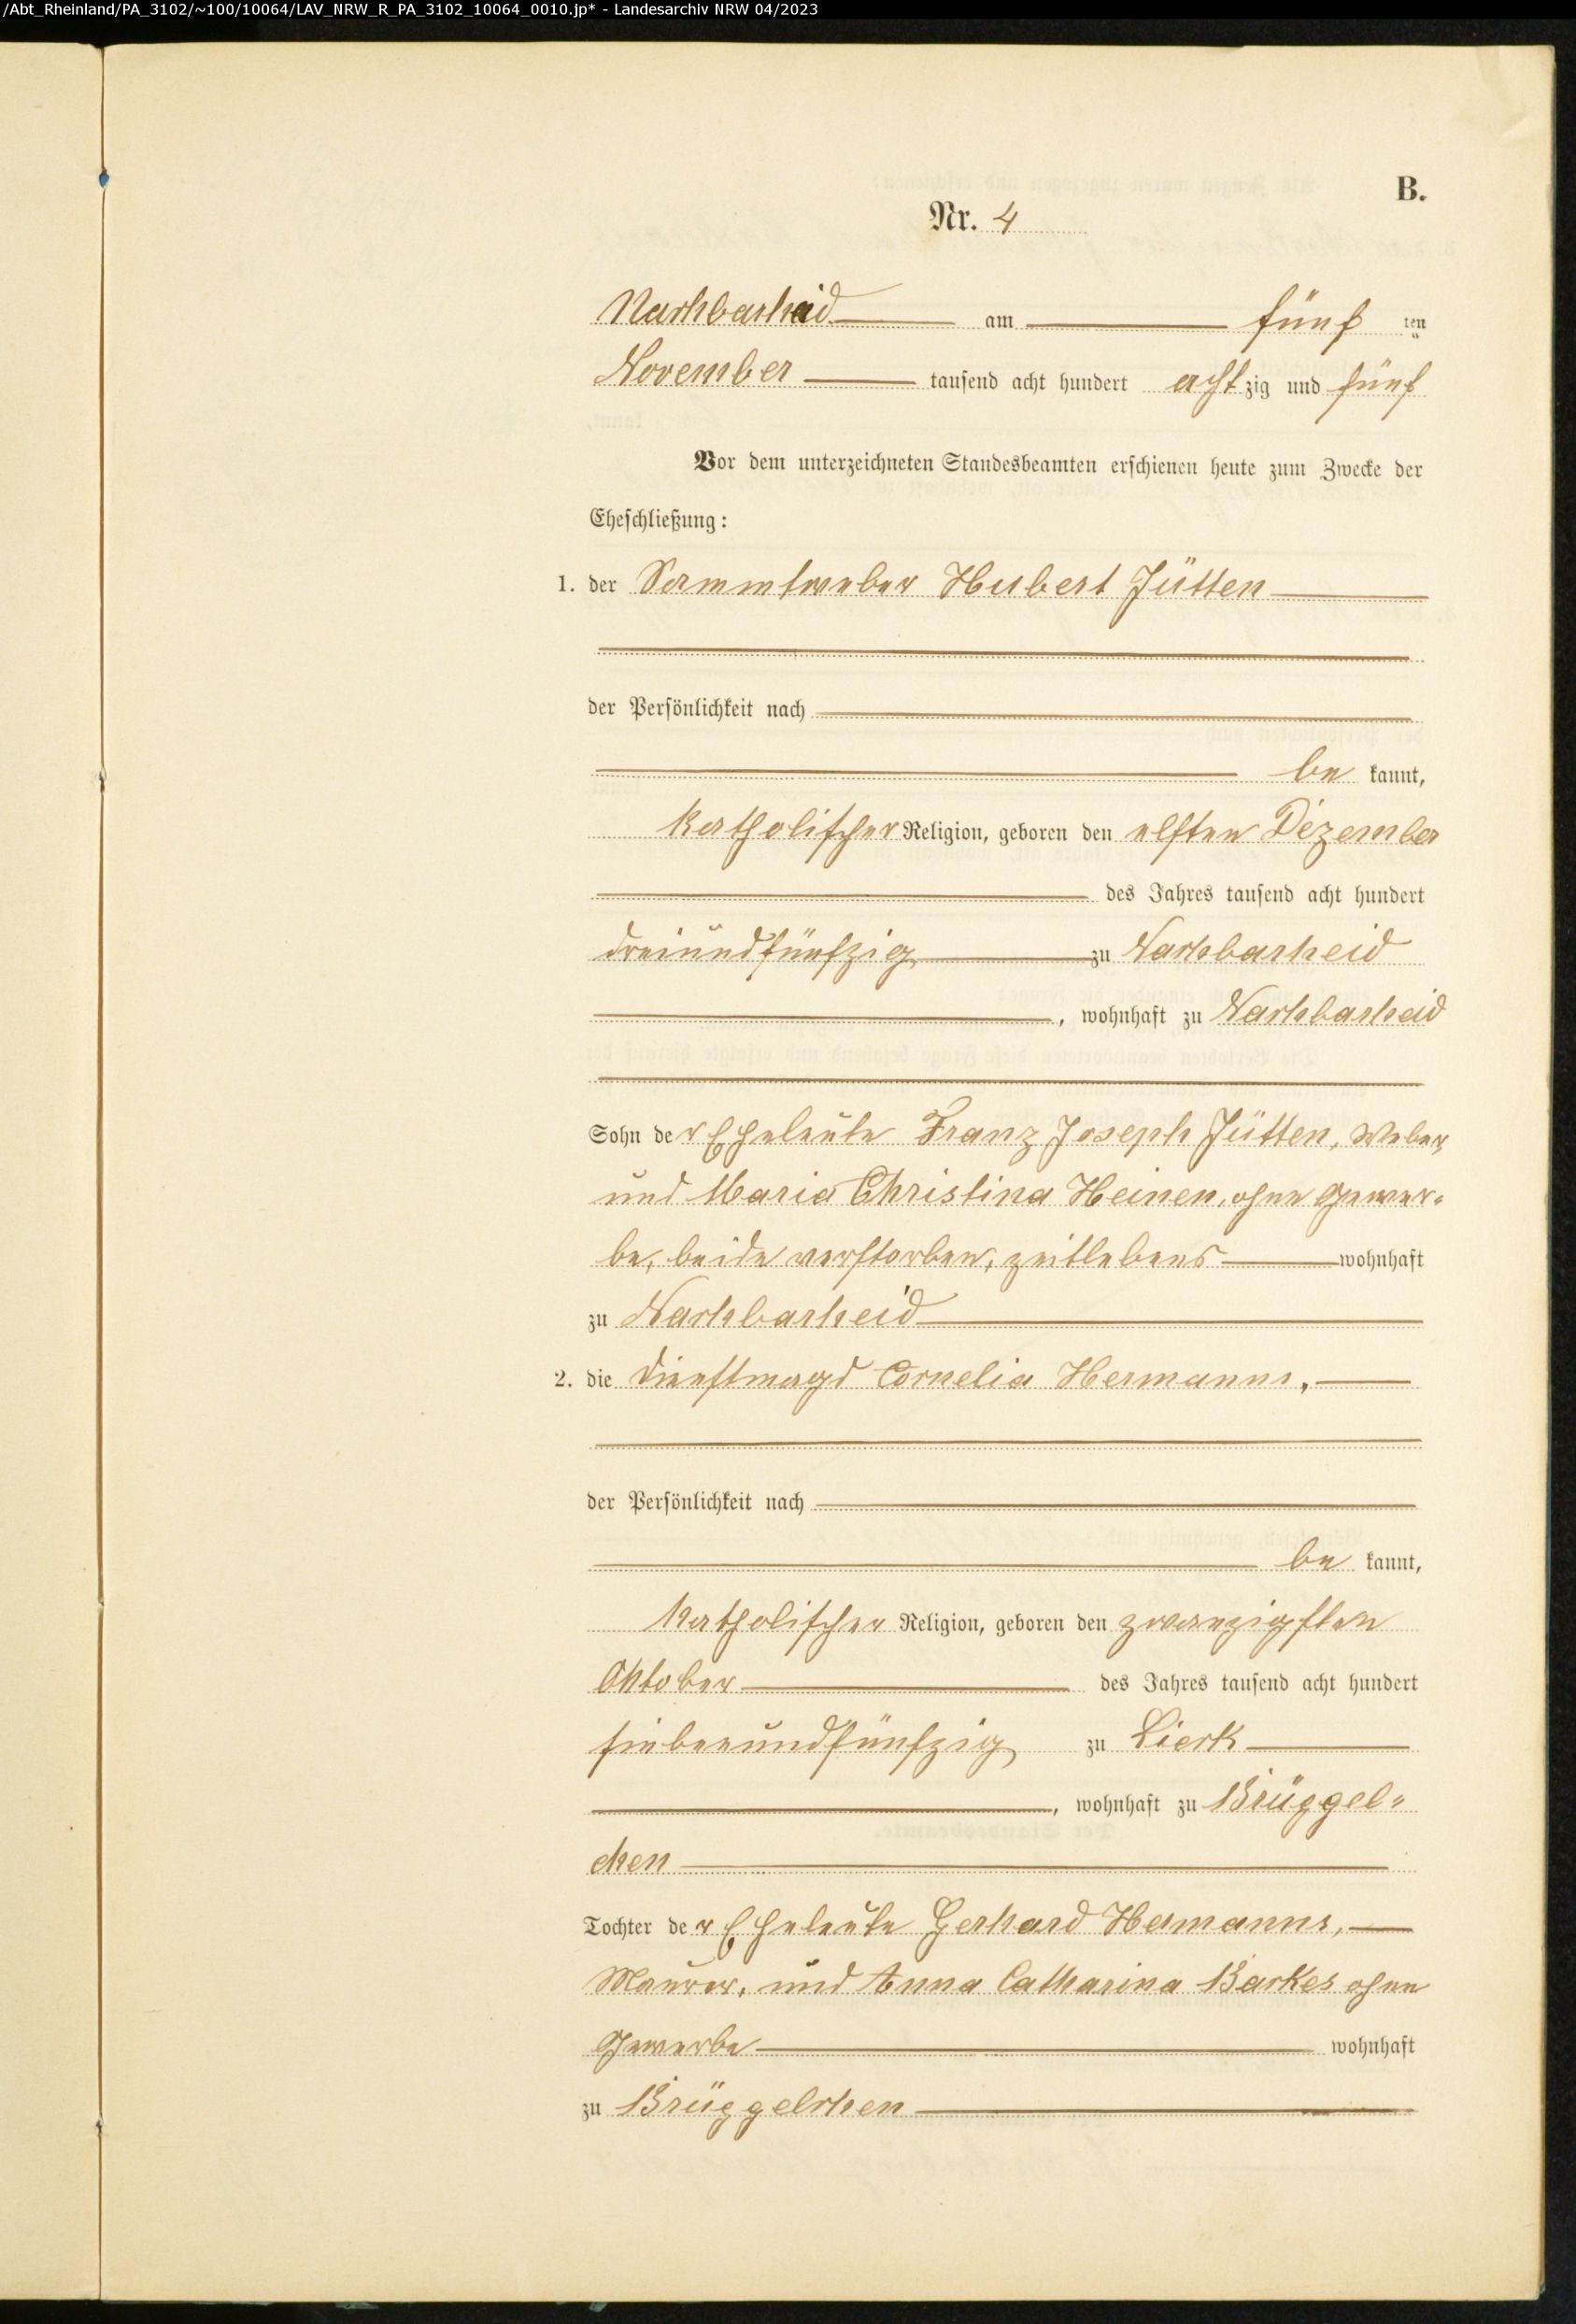 /Abt_Rheinland/PA_3102/~100/10064/LAV_NRW_R_PA_3102_10064_0010.jp* - Landesarchiv NRW 04/2023
B.
Nr. 4
Markbarheid am fünf ten
November tausend acht hundert achtzig und fünf
Vor dem unterzeichneten Standesbeamten erschienen heute zum Zwecke der
Eheschließung:
1. der Sammtweber Hubert Jütten
der Persönlichkeit nach
be kannt,
katholischer Religion, geboren den elften Dezember
des Jahres tausend acht hundert
dreiundfünfzig zu
, wohnhaft zu
Sohn der Eheleute Franz Joseph Jütten, Weber,
und Maria Christina Heinen, ohne Gewer-
be, beide verstorben, zeitlebens wohnhaft
zu
2. die Dienstmagd Cornelia Hermanns,
der Persönlichkeit nach
be kannt,
katholischer Religion, geboren den zwanzigsten
Oktober des Jahres tausend acht hundert
siebenundfünfzig zu Lierk
, wohnhaft zu Brüggel-
chen
Tochter der Eheleute Gerhard Hermanns,
Maurer, und Anna Catharina Backes ohne
Gewerbe wohnhaft
zu Brüggelchen